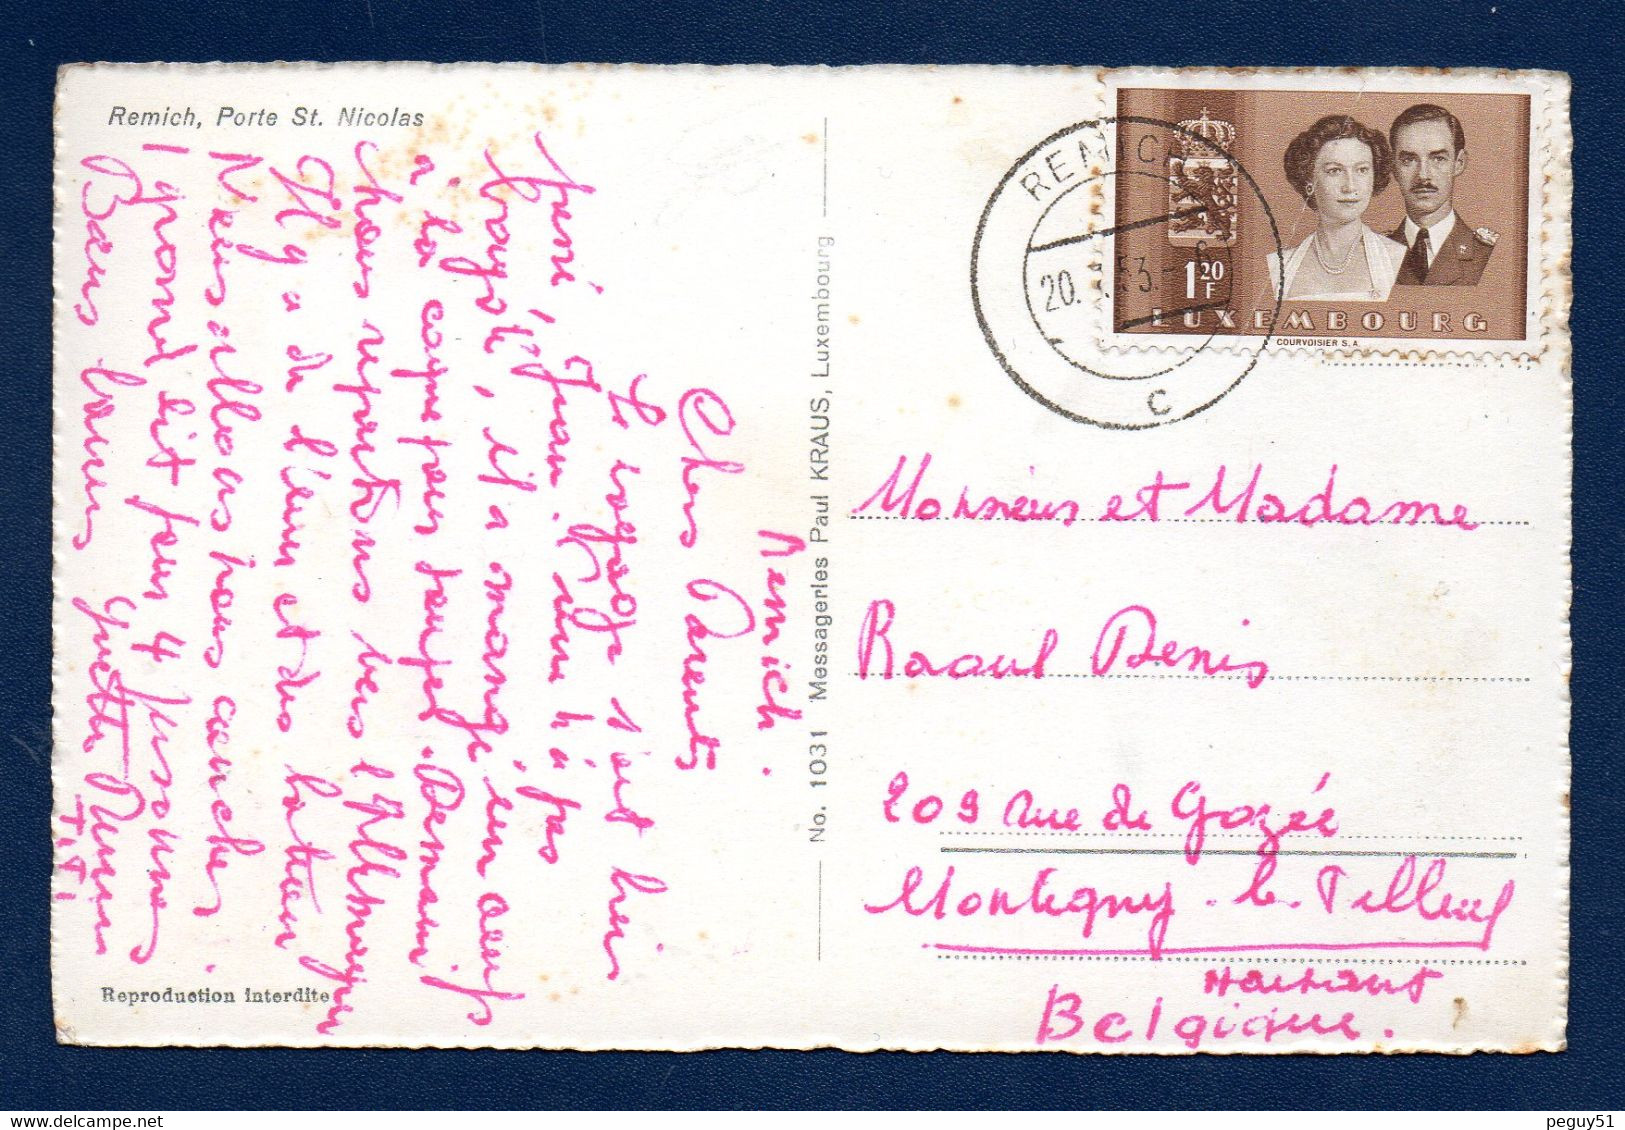 Remich, Porte St. Nicolas
Remich.
Chers Parents
Le voyage s'est bien
passé, Jean n'a pas
voyagé, il a mangé un œuf
à la coque pour souper. Demain
nous repartons vers l'Allemagne
Il y a de l'eau et des bateaux
Nous allons nous coucher.
1 grand lit pour 4 personnes
Bons baisers
No. 1031 Messageries Paul KRAUS, Luxembourg
Reproduction interdite
REMICH
20. .53.
C
1 20 F
LUXEMBOURG
COURVOISIER S.A.
Monsieur et Madame
Raoul Denis
209 rue de Gozée
Montigny-le-Tilleul
Hainaut
Belgique.
peguy51